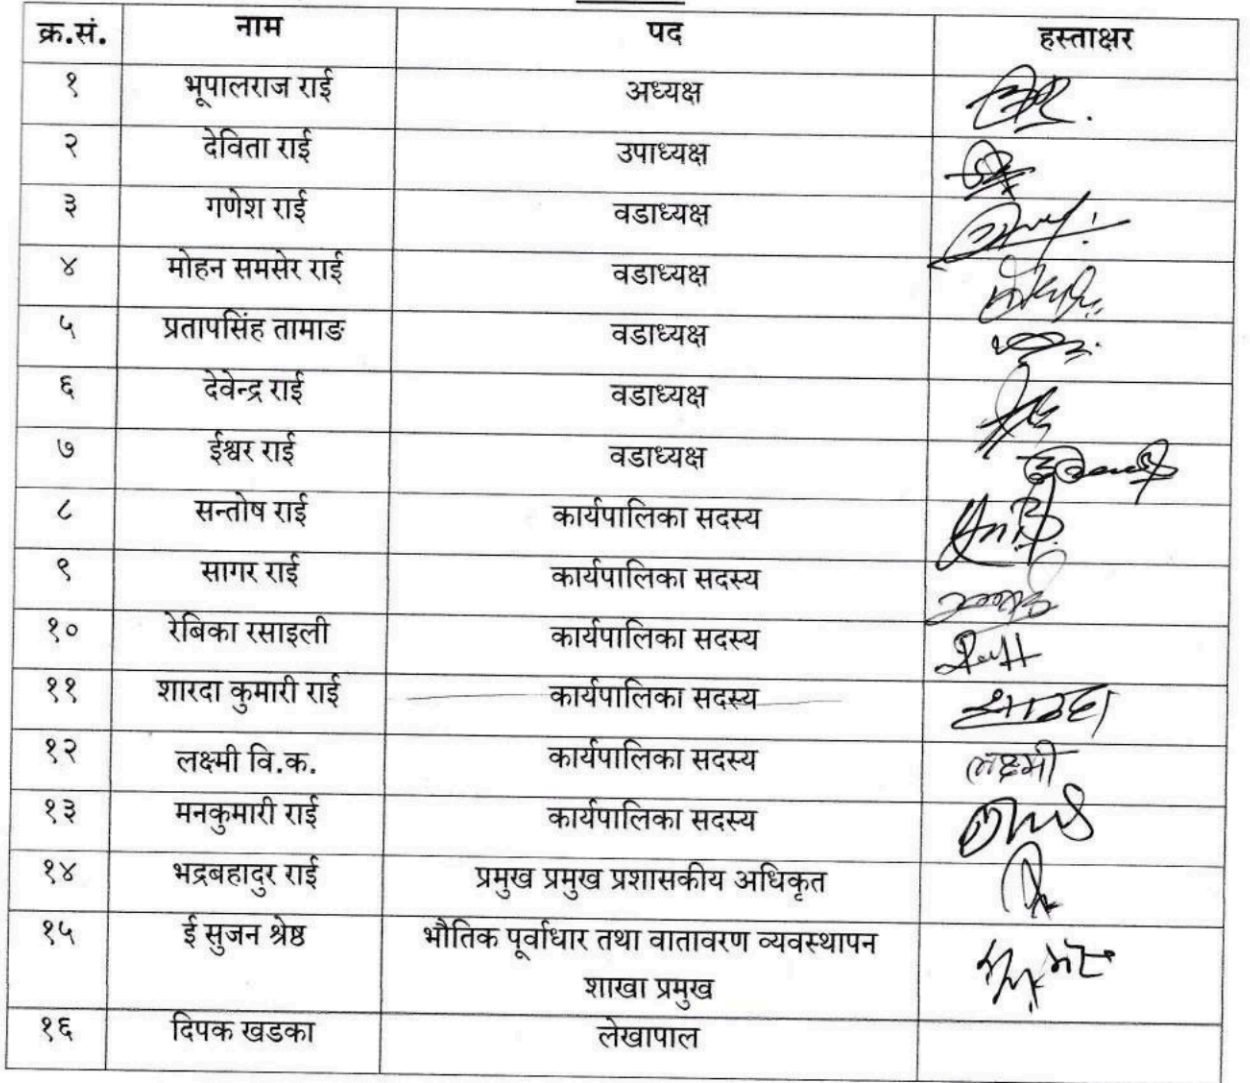 क्र.सं. नाम पद हस्ताक्षर
१ भूपालराज राई अध्यक्ष
२ देविता राई उपाध्यक्ष
३ गणेश राई वडाध्यक्ष
४ मोहन समसेर राई वडाध्यक्ष
५ प्रतापसिंह तामाङ वडाध्यक्ष
६ देवेन्द्र राई वडाध्यक्ष
७ ईश्वर राई वडाध्यक्ष
८ सन्तोष राई कार्यपालिका सदस्य
९ सागर राई कार्यपालिका सदस्य
१० रेबिका रसाइली कार्यपालिका सदस्य
११ शारदा कुमारी राई कार्यपालिका सदस्य शारदा
१२ लक्ष्मी वि.क. कार्यपालिका सदस्य लक्ष्मी
१३ मनकुमारी राई कार्यपालिका सदस्य
१४ भद्रबहादुर राई प्रमुख प्रमुख प्रशासकीय अधिकृत
१५ ई सुजन श्रेष्ठ भौतिक पूर्वाधार तथा वातावरण व्यवस्थापन
शाखा प्रमुख
१६ दिपक खडका लेखापाल